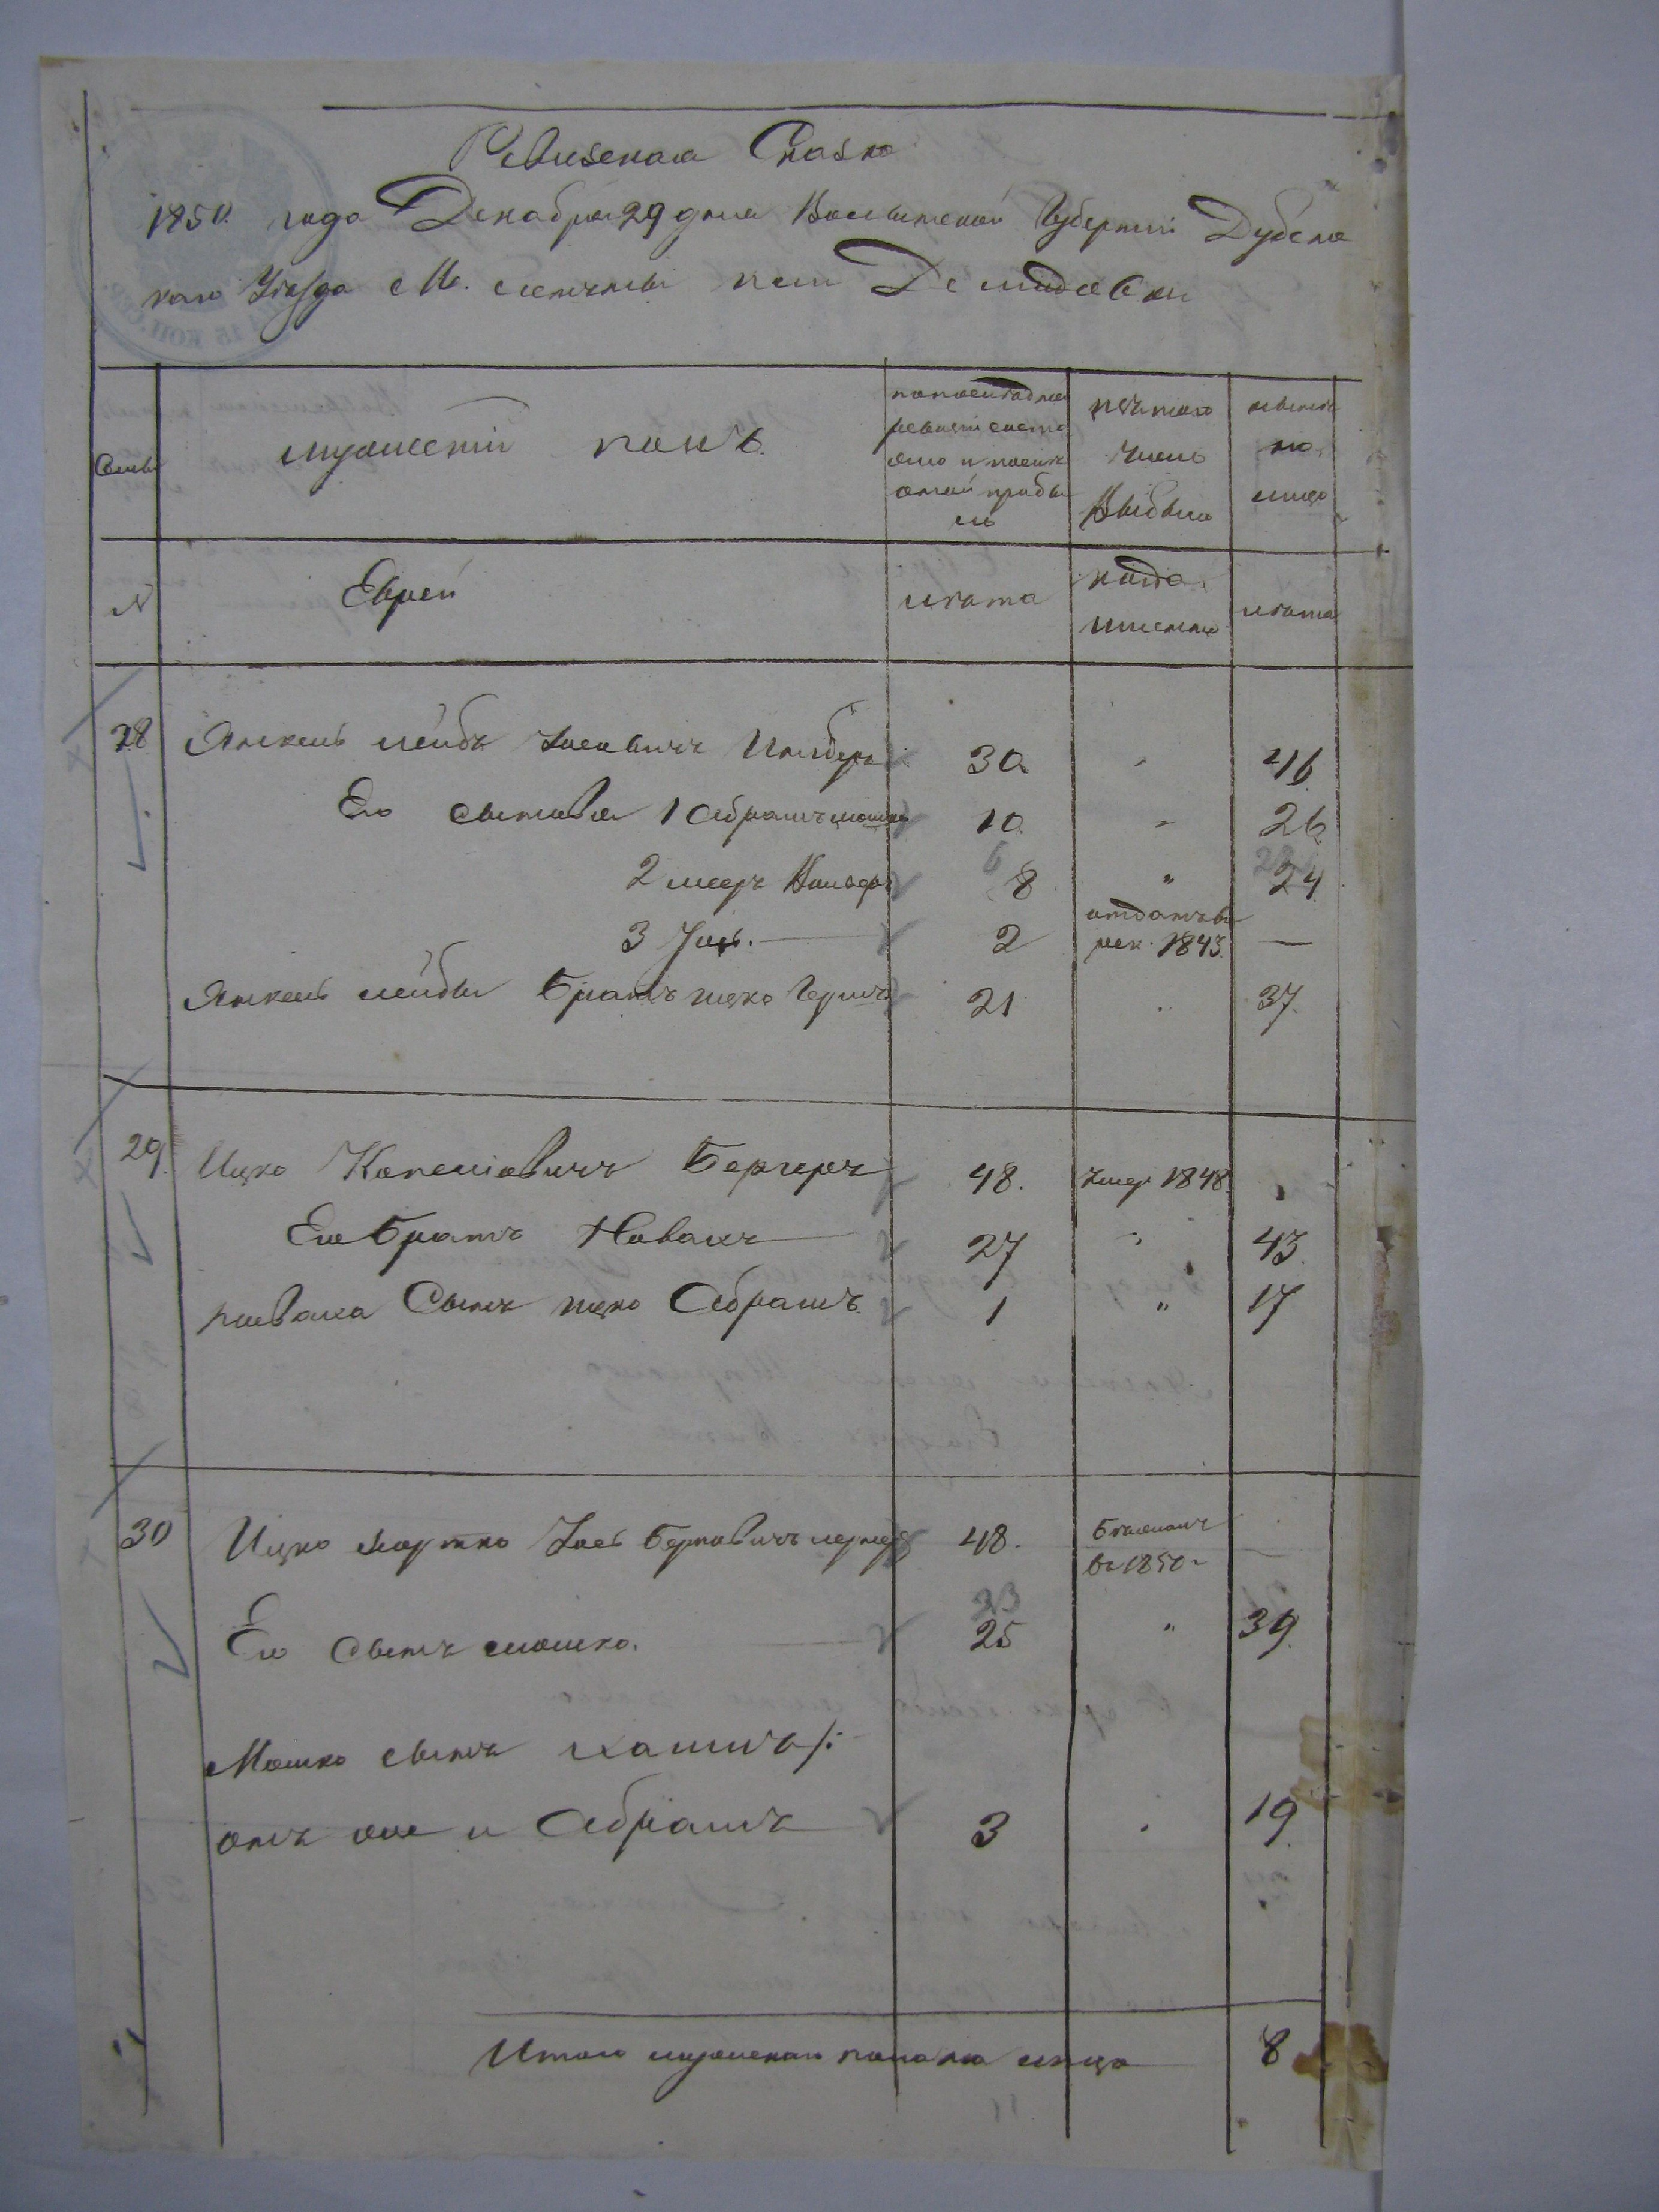 Ревизская Сказка
1850. года Декабря 29 дня Волынской Губерніи Дубенс
каго Уезда М. Демидовки
Семьи
мужескій полъ.
попоследней
ревизіи состо
яло и после
оной прибы
ло
изътого
числа
Выбыло
ныне
на
лицо
N
Евреи
лета
когда
именно
лета
28 Янкель Лейбъ Иосьовичъ Имбера 30 " 46
Его сыновья 1 Абрамъ Мошко 10 " 26
2 Меер Вольфъ 6 8 " 24
3 Jось. 2 отданъ в
рек. 1843. —
Янкель Лейбы Братъ Ицко Гершъ 21 " 37.
29. Ицко Копелiовичъ Бергеръ 48. умер 1848. "
Его Братъ Новахъ 27 " 43.
Новаха Сынъ Ицко Абрамъ 1 " 17
30 Ицко Мортко Иось Берковичъ 48. Безвестн
въ 1850 г
Его Сынъ Мошко. 23 25 " 39.
Мошко сынъ Хаимъ /:
онъ же и Абрамъ 3 " 19
Итого мужеска пола на лицо 8